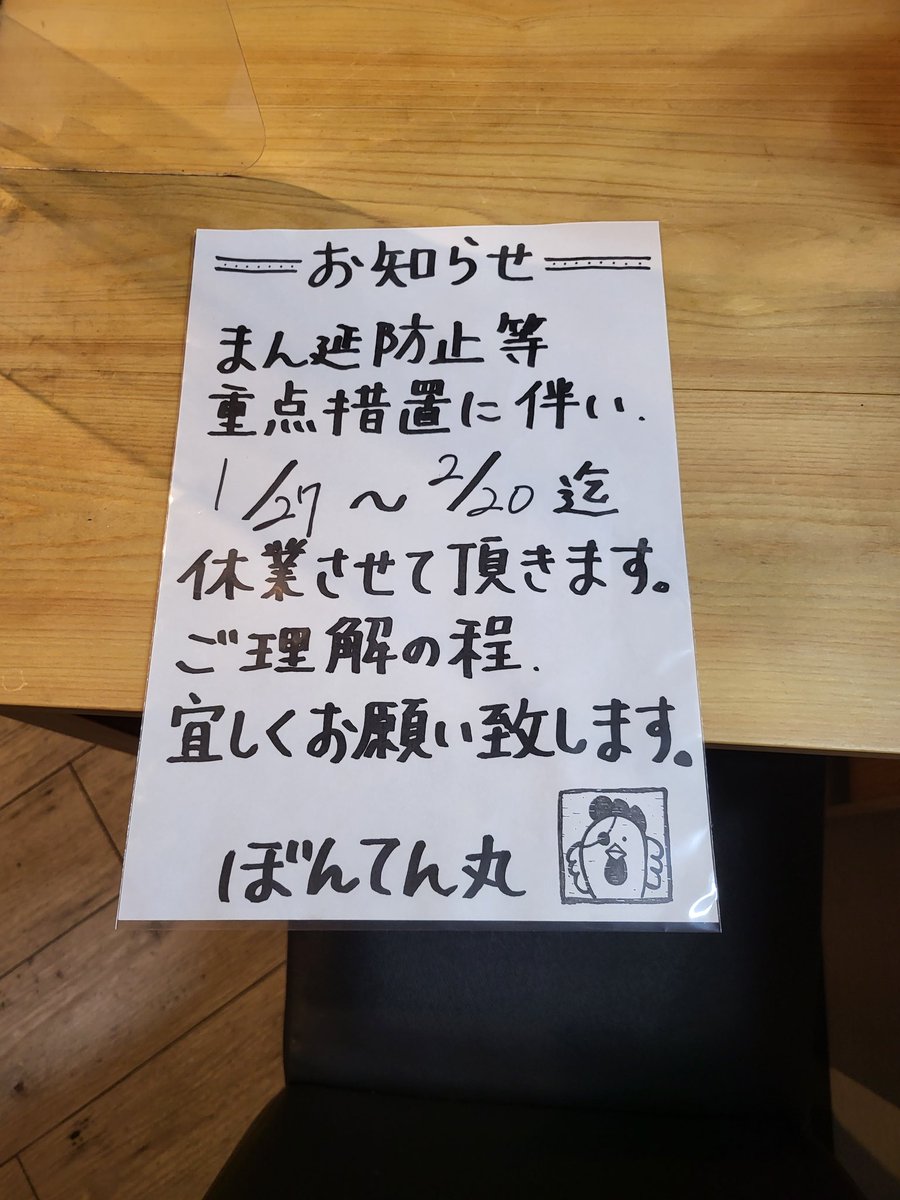 お知らせ
まん延防止等
重点措置に伴い、
1/27〜2/20迄
休業させて頂きます。
ご理解の程、
宜しくお願い致します。
ぼんてん丸